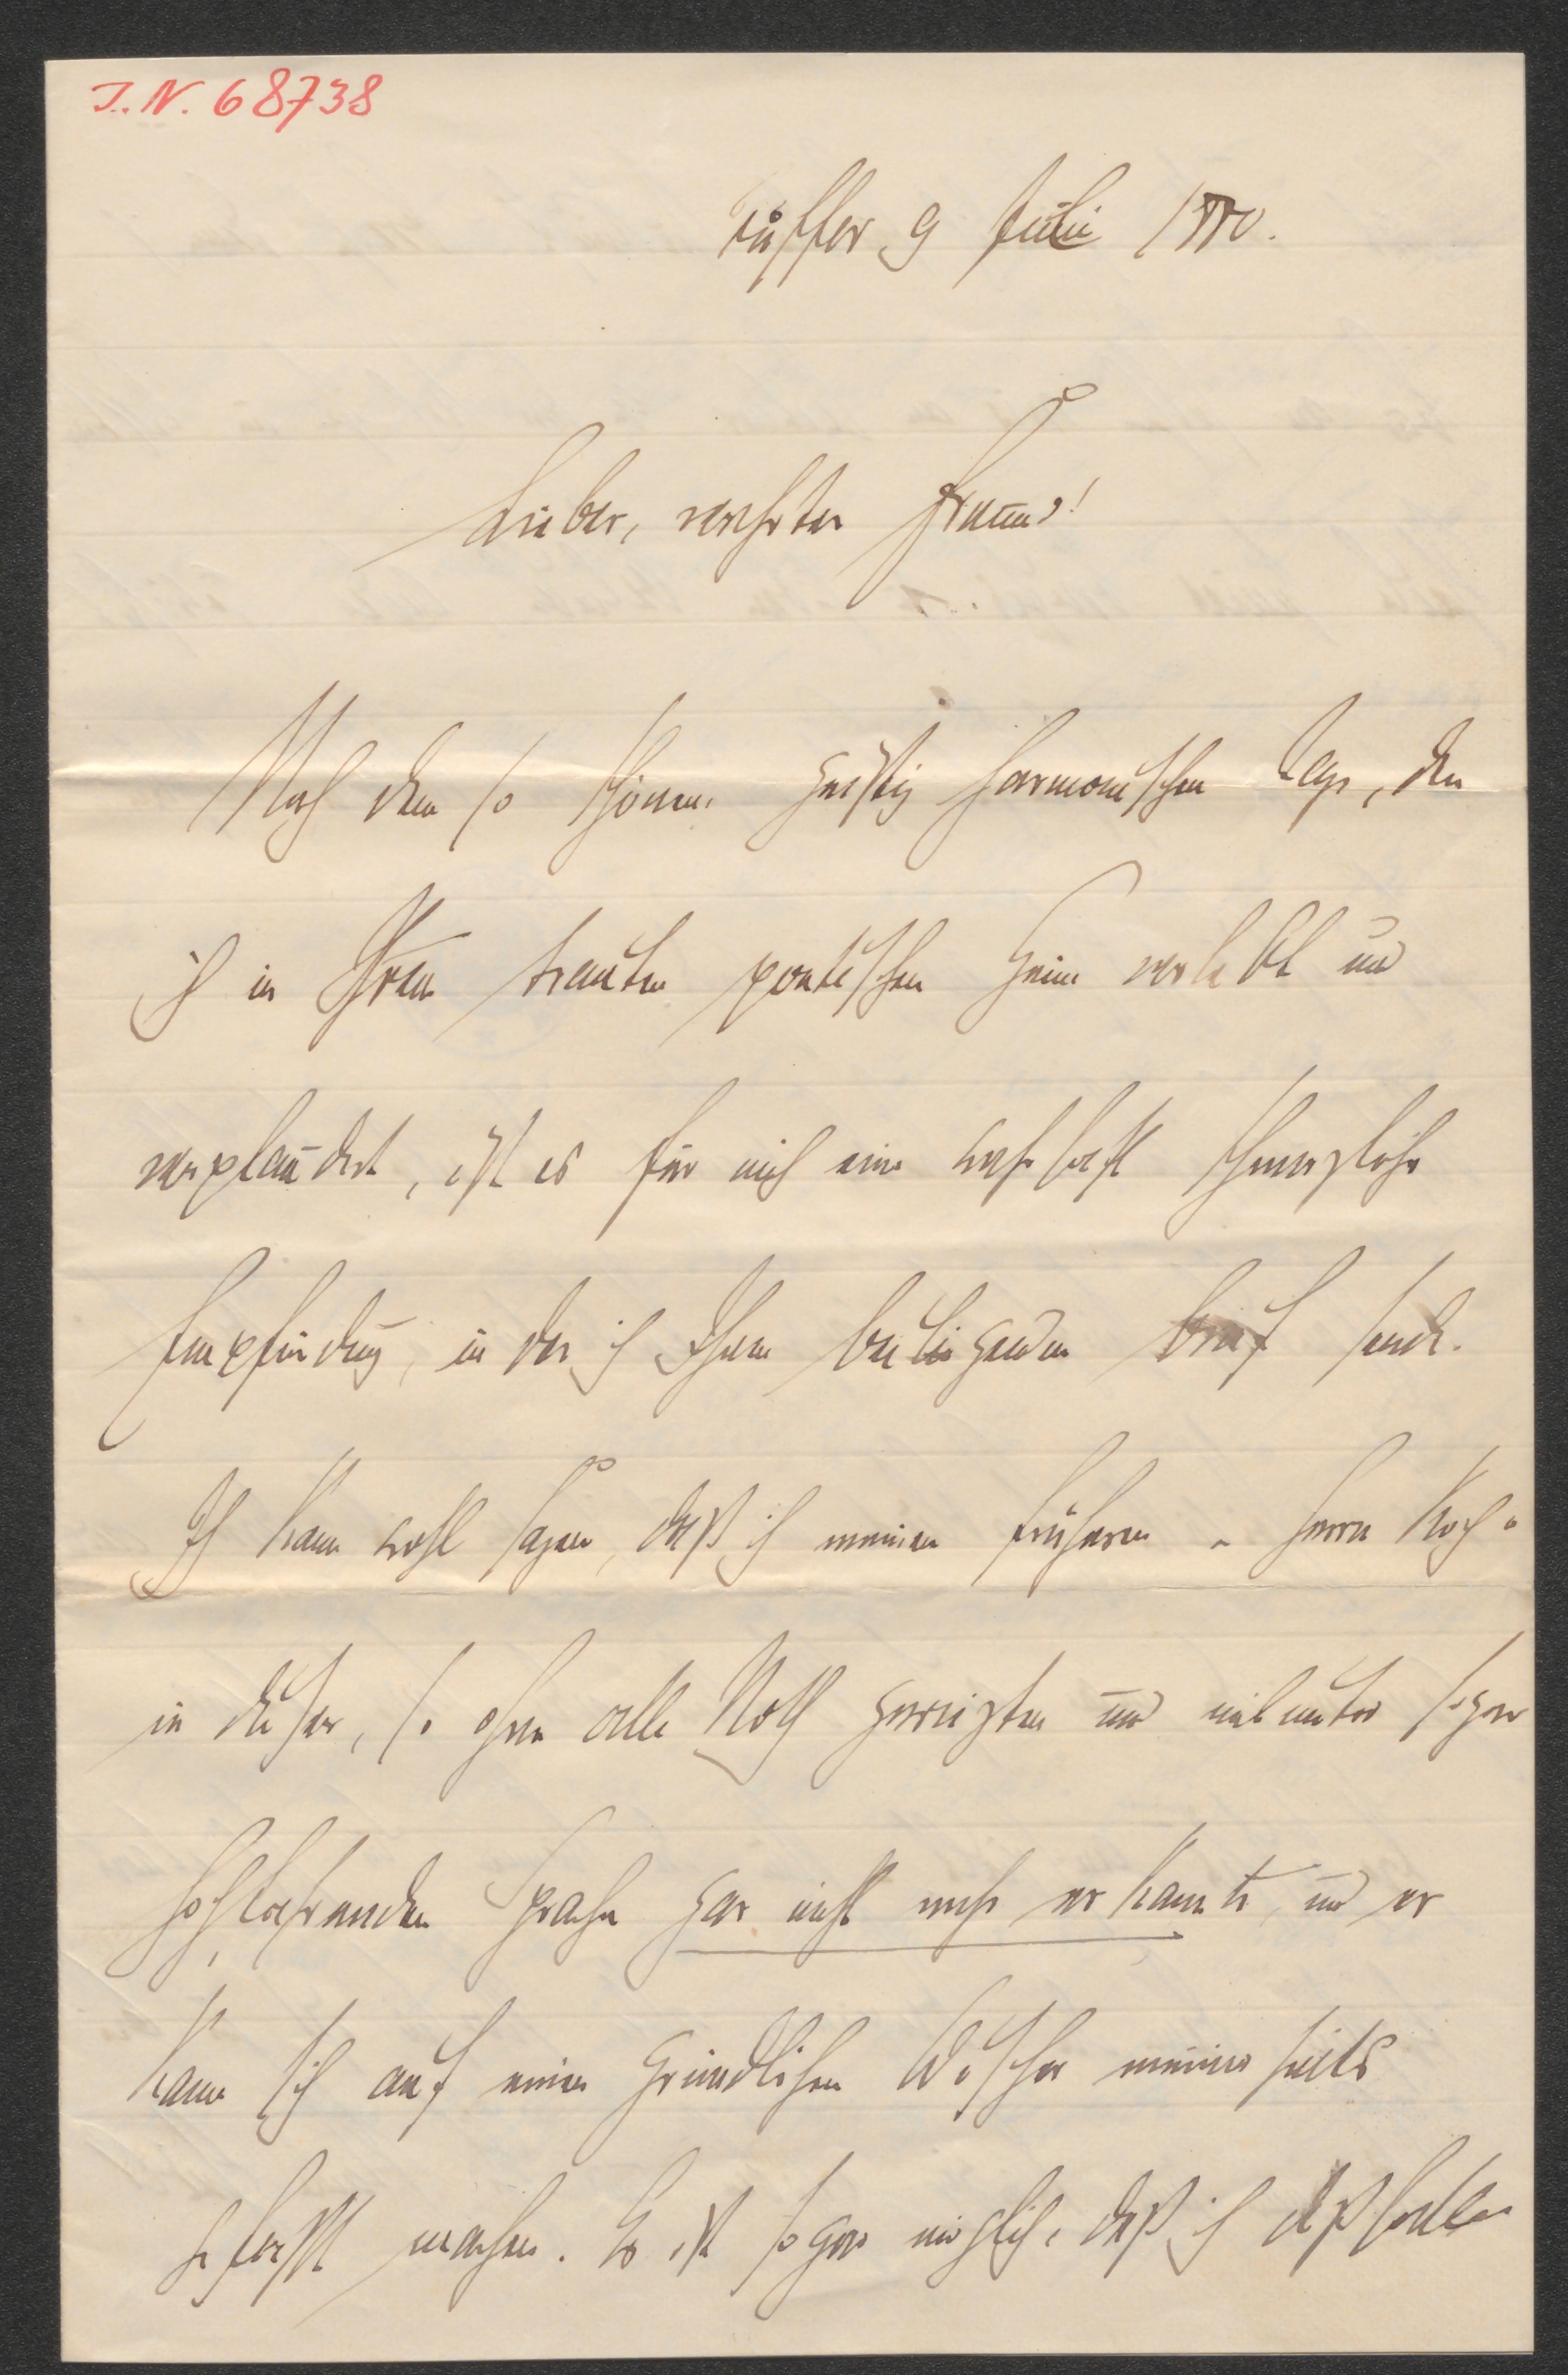 J. N. 68738
Tüffer 9 Juli 1880.
Lieber, verehrter Freund!
Nach dem so schönen, geistig harmonischen Tage, den
ich in Ihrem trauten poetischen Heim verlebt und
verplaudert, ist es für mich eine wahrhaft schmerzliche
Empfindung, in der ich Ihnen beiliegenden Brief sende.
Ich kann wohl sagen, daß ich meinen früheren Herrn Koch
in dieser, so ohne alle Noth gereizten und mitunter sogar
hochfahrenden Sprache gar nicht mehr erkannte, und er
kann sich auf einen gründlichen Wischer meinerseits
gefaßt machen. Es ist sogar möglich, daß ich deßhalb